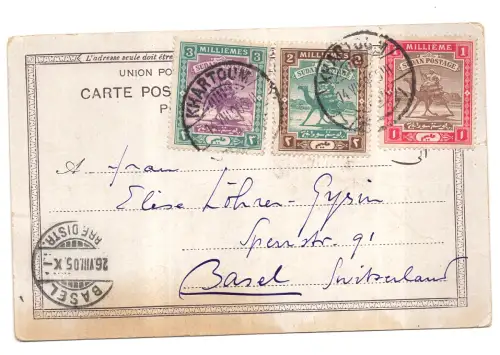 L'adresse seule doit être
UNION PO
CARTE POS
P
3 MILLIÈMES 3
SUDAN POSTAGE
2 MILLIÈMES 2
SUDAN POSTAGE
1 MILLIÈME 1
SUDAN POSTAGE
KHARTOUM
KHARTOUM
A Frau
Elise Löhrer-Gysin
Spernstr. 91
Basel Switzerland
BASEL
26.VIII.05.X
BRF. DISTR.